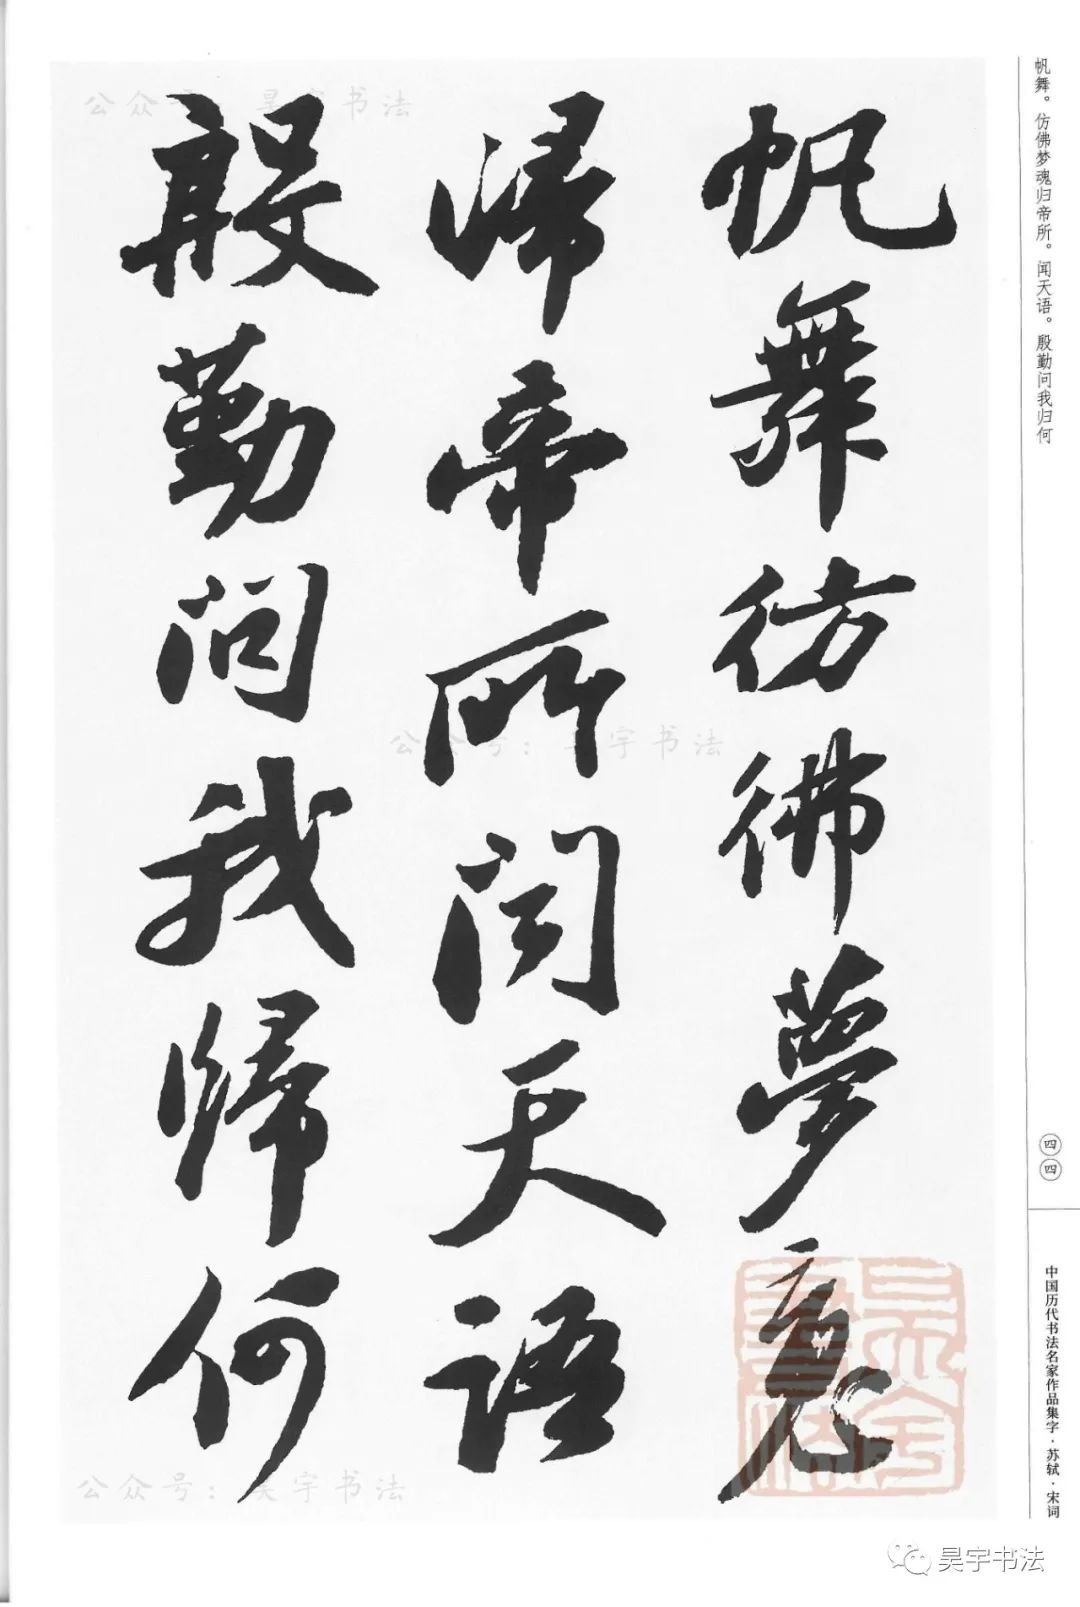 帆舞彷彿夢魂
歸帝所聞天語
殷勤問我歸何
帆舞。仿佛梦魂归帝所。闻天语。殷勤问我归何
四四
中国历代书法名家作品集字·苏轼·宋词
公众号：昊宇书法
公众号：昊宇书法
公众号：昊宇书法
昊宇书法